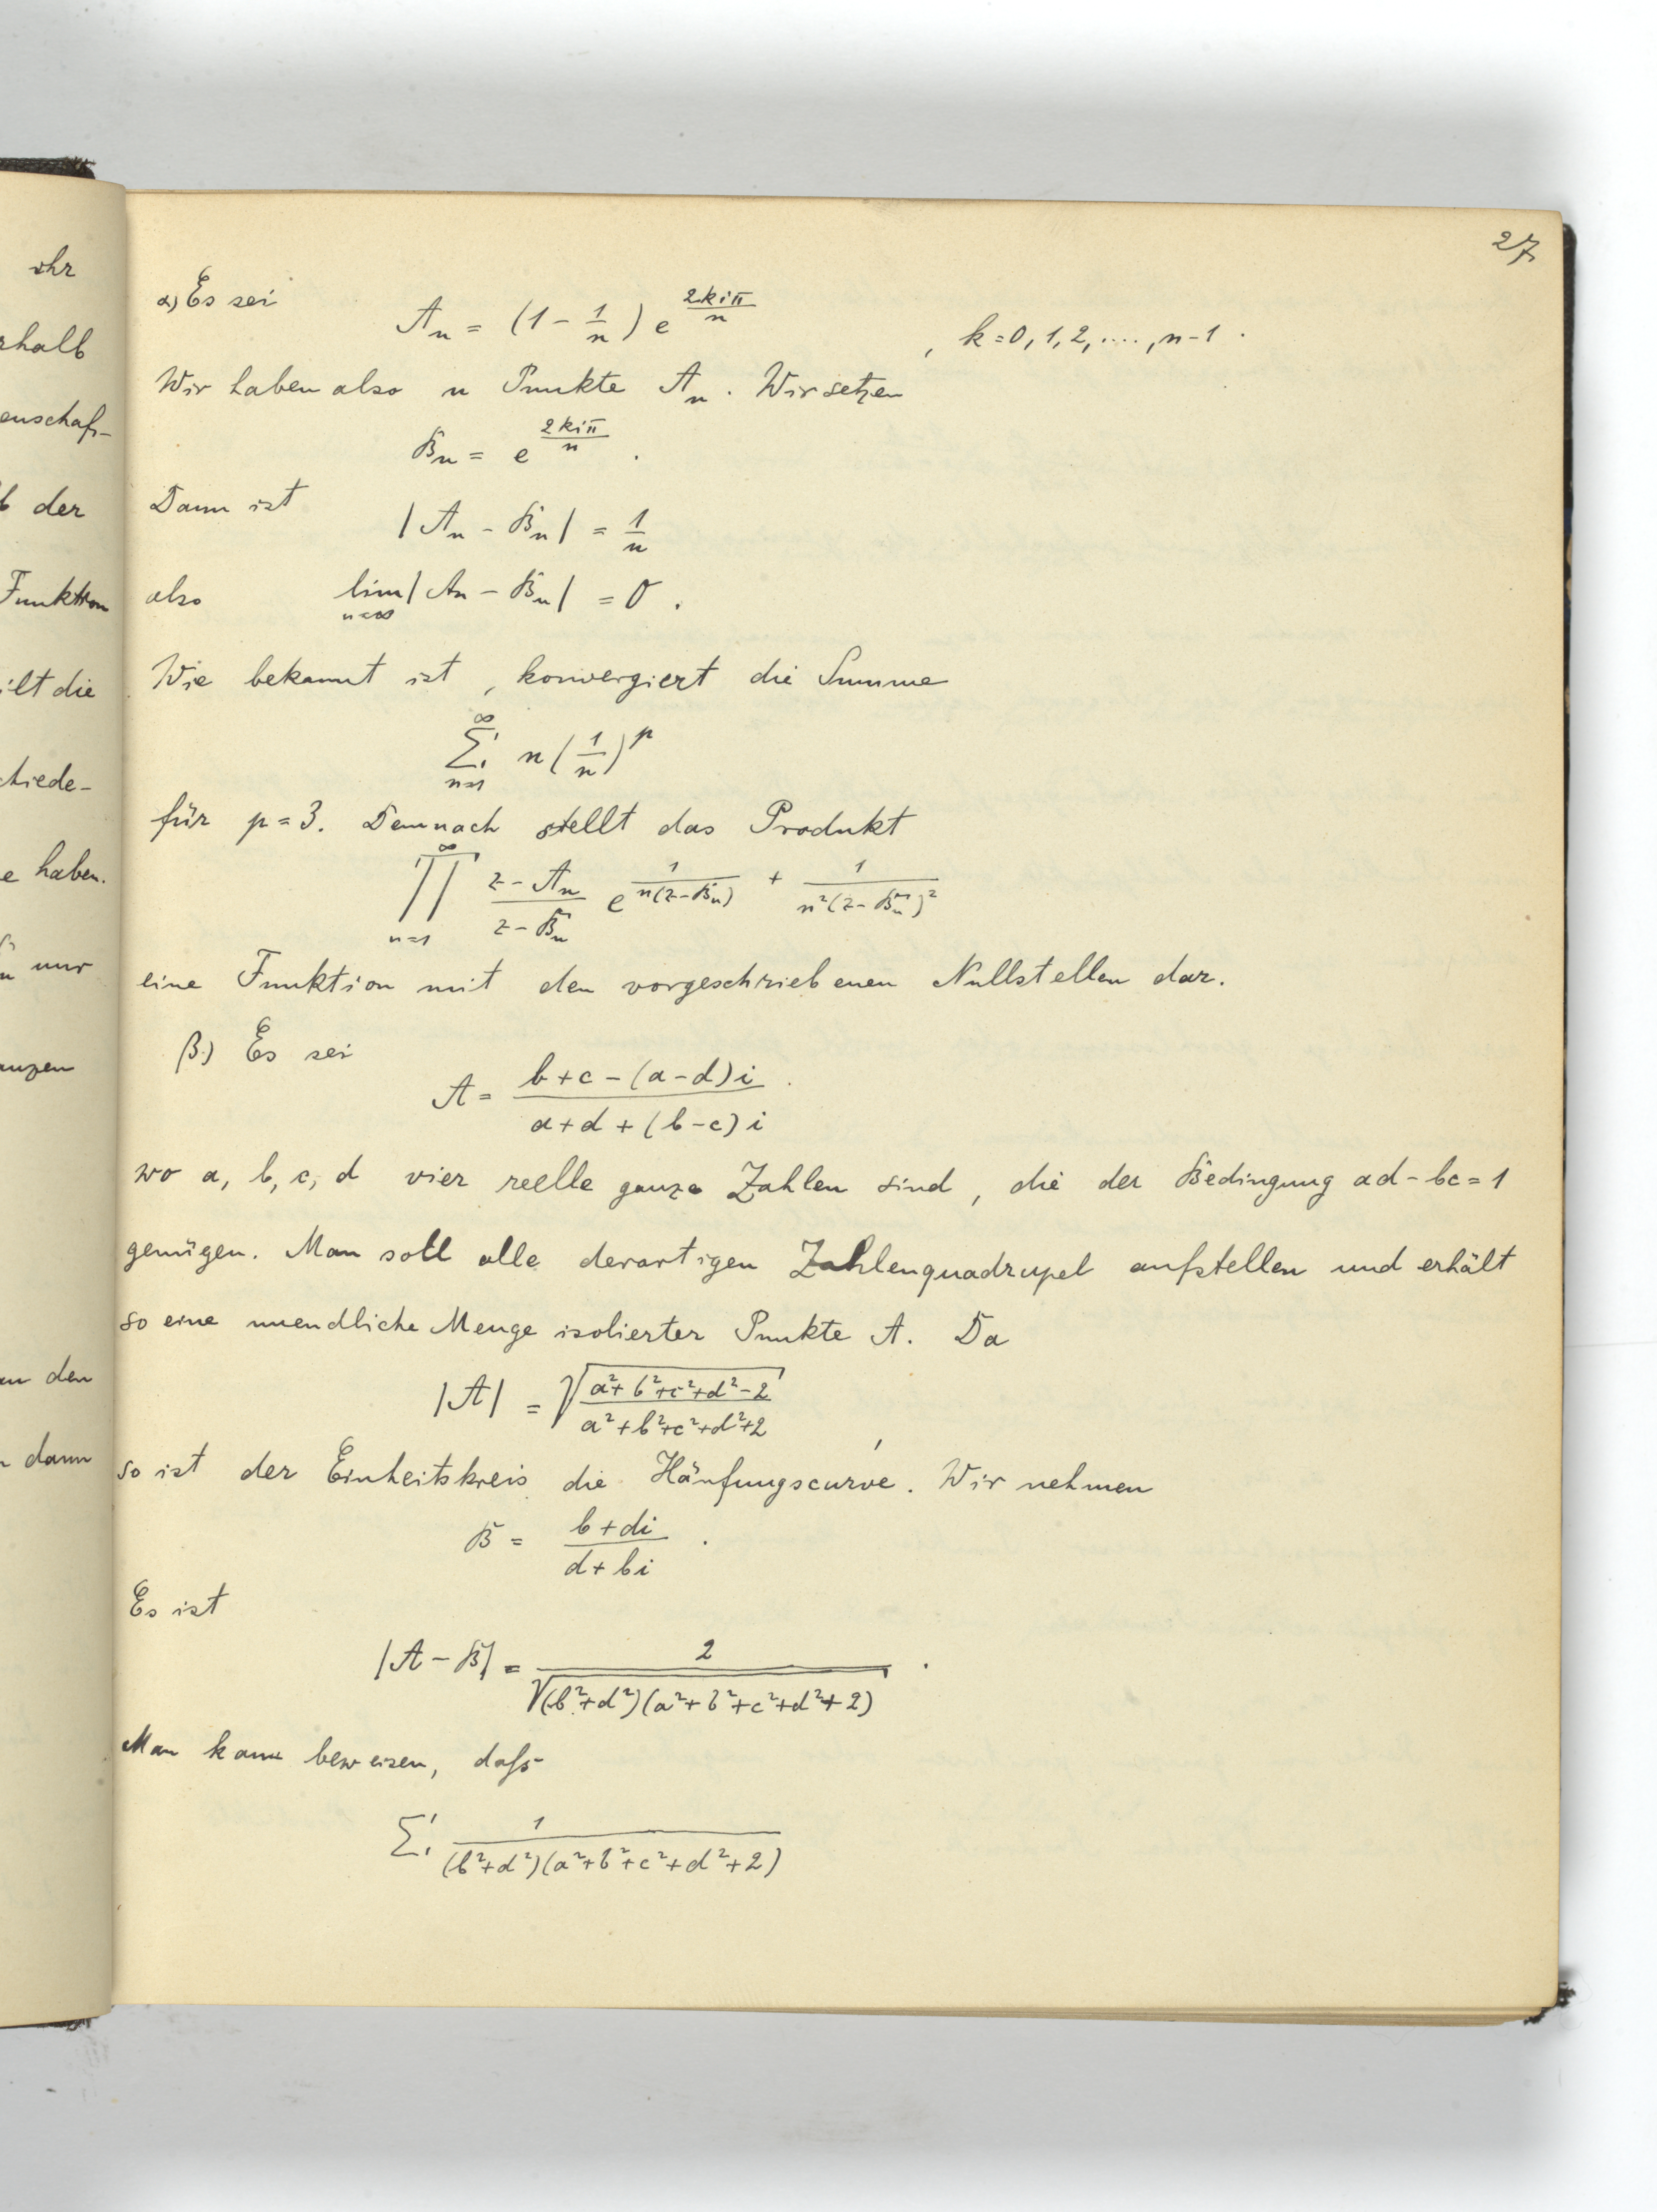 ihr
rhalb
enschaf-
b der
Funktion
ilt die
chiede-
e haben.
nur
anzen
an den
dann
27
α) Es sei
A_n = (1 - 1/n) e^{2kiπ/n}, k = 0, 1, 2, ...., n-1.
Wir haben also n Punkte A_n. Wir setzen
B_n = e^{2kiπ/n}.
Dann ist
|A_n - B_n| = 1/n
also lim_{n=∞} |A_n - B_n| = 0.
Wie bekannt ist, konvergiert die Summe
∑_{n=1}^{∞} n (1/n)^p
für p = 3. Demnach stellt das Produkt
∏_{n=1}^{∞} (z - A_n)/(z - B_n) e^{1/(n(z-B_n)) + 1/(n²(z-B_n)²)}
eine Funktion mit den vorgeschriebenen Nullstellen dar.
β.) Es sei
A = (b+c-(a-d)i)/(a+d+(b-c)i).
wo a, b, c, d vier reelle ganze Zahlen sind, die der Bedingung ad-bc=1
genügen. Man soll alle derartigen Zahlenquadrupel aufstellen und erhält
so eine unendliche Menge isolierter Punkte A. Da
|A| = √((a²+b²+c²+d²-2)/(a²+b²+c²+d²+2)),
so ist der Einheitskreis die Häufungscurve. Wir nehmen
B = (b+di)/(d+bi).
Es ist
|A-B| = 2/√((b²+d²)(a²+b²+c²+d²+2)).
Man kann beweisen, daß
∑ 1/((b²+d²)(a²+b²+c²+d²+2))